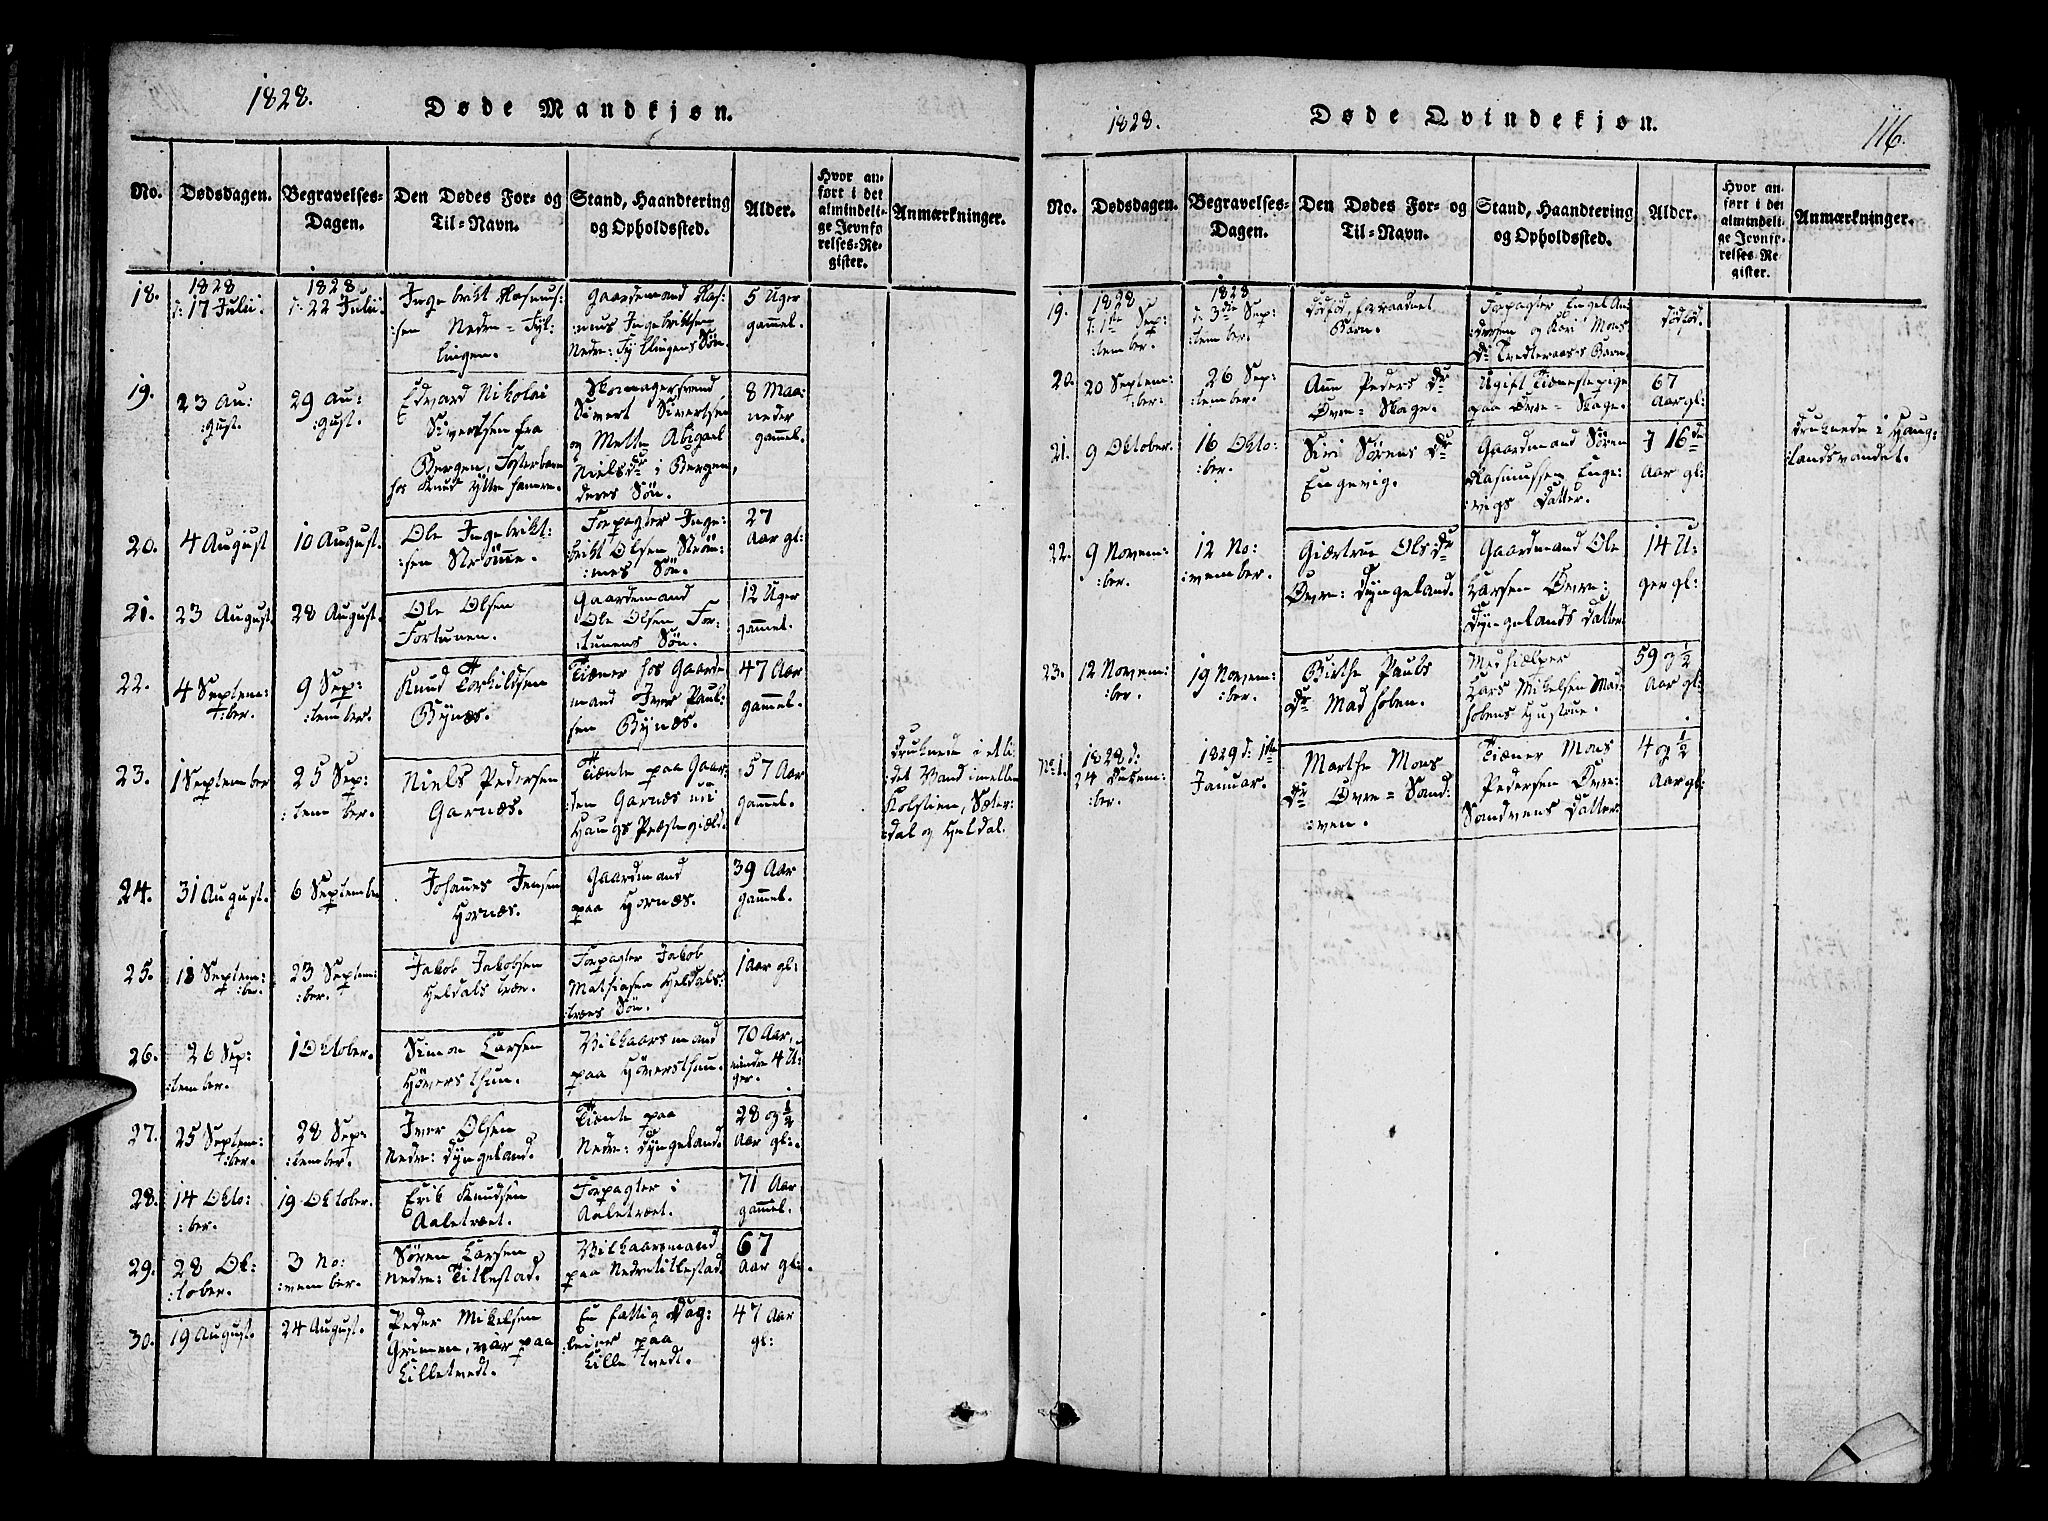 1828.
Døde Mandkjøn.
No.
Dødsdagen.
Begravelses-
Dagen.
Den Dødes For- og
Til-Navn.
Stand, Haandtering
og Opholdssted.
Alder.
Hvor an-
ført i det
almindeli-
ge Jevnfø-
relses-Re-
gister.
Anmærkninger.
18.
1828
d: 17 Julii
1828
d: 22 Julii
Ingebrikt Rasmus-
sen Nedre-Tyl-
lingen.
Gaardemand Ras-
:mus Ingebriktsen
Nedre: Tyllingens Søn.
5 Uger
gammel.
19.
23 Au:
:gust.
29 Au:
:gust.
Edvard Nikolai
Sivertsen fra
Bergen, Fosterbarn
hos Knud Yttre
Skomagersvend
Sivert Sivertsen
og Mette Abigael
Nielsdr i Bergen,
deres Søn.
8 Maa:
neder
gammel.
20.
4 August
10 August.
Ole Ingebrikt:
:sen Strömme.
Forpagter Inge:
:brikt Olsen Ström:
:mes Søn.
27
Aar gl:
21.
23 August.
28 August.
Ole Olsen
Fortunen.
Gaardemand
Ole Olsen For:
:tunens Søn.
12 Uger
gammel.
22.
4 Septem:
:ber.
9 Sep:
:tember.
Knud Torkildsen
Bynæs.
Tiener hos Gaarde
mand Iver Paul:
sen Bynæs.
47 Aar
gammel.
23.
1 September
25 Sep:
:tember.
Niels Pedersen
Garnæs.
Tiente paa Gaar:
:den Garnæs i
Haugs Præstegiæld.
57 Aar
gammel.
druknede i et li:
:det Vand imellem
Kolstien, Sæter:
:dal og Heldal.
24.
31 August.
6 September
Johannes Jensen
Hornæs.
Gaardmand
paa Hornæs.
39 Aar
gammel.
25.
18 Septem:
:ber.
23 Septem:
:ber.
Jakob Jakobsen
Heldals træe.
Forpagter Jakob
Mathiasen Heldals:
:træes Søn.
1 Aar gl:
26.
26 Sep:
:tember.
1 Oktober.
Simon Larsen
Höversthun.
Vilkaarsmand
paa Höversthun.
70 Aar,
mindre 4 U:
ger.
27.
25 Septem:
:ber.
28 Sep:
:tember.
Iver Olsen
Nedre: Dyngeland.
Tiente paa
Nedre: Dyngeland.
28 og ½
Aar gl:
28.
14 Okto:
:ber.
19 Oktober.
Erik Knudsen
Aaletræet.
Forpagter i
Aaletræet.
71 Aar
gammel.
29.
28 Ok:
:tober.
3 No:
:vember.
Søren Larsen
Nedre: Titlestad.
Vilkaarsmand
paa Nedretitlestad.
67
Aar gl:
30.
19 August.
24 August.
Peder Mikelsen
Grimen, var paa
Lilletvedt.
En fattig Dag:
:leier paa
Lille tvedt.
47 Aar
gl:
1828.
Døde Qvindekjøn.
116.
No.
Dødsdagen.
Begravelses-
Dagen.
Den Dødes For- og
Til-Navn.
Stand, Haandtering
og Opholdssted.
Alder.
Hvor an-
ført i det
almindeli-
ge Jevnfø-
relses-Re-
gister.
Anmærkninger.
19.
1828
d: 1ste Sep:
:tember.
1828
d: 3die Sep:
:tember.
dødfød,
Barn.
Forpagter Engel An:
:dersen og Kari Mons
Dr Tvedteraas's Barn.
dødfød.
20.
20 Septem:
:ber.
26 Sep:
:tember.
Ann Peders Dr
Øvre-Skage.
Ugift Tienestepige
paa Øvre-Skage.
67
Aar gl:
21.
9 Oktober.
16 Okto:
:ber.
Siri Sørens Dr
Engevig.
Gaardmand Søren
Rasmussen Enge:
:vigs Datter.
I 16de
Aar gl:
druknede i Haug:
landsvandet.
22.
9 Novem:
:ber.
12 No:
:vember.
Giertrue Ols Dr
Øvre: Dyngeland.
Gaardmand Ole
Larsen Øvre:
Dyngelands Datter.
14 U:
ger gl:
23.
12 Novem:
:ber.
19 Novem:
:ber.
Birthe Pauls
Dr Madhoben.
Medhielper
Lars Mikelsen Mad:
hobens Hustrue.
59 og ½
Aar gl:
No 1.
1828 d:
24 Decem:
:ber.
1829 d: 1ste
Januar.
Marthe Mons
Dr Øvre-Sand:
:ven.
Tiener Mons
Pedersen Øvre:
Sandvens Datter.
4 og ½
Aar gl: